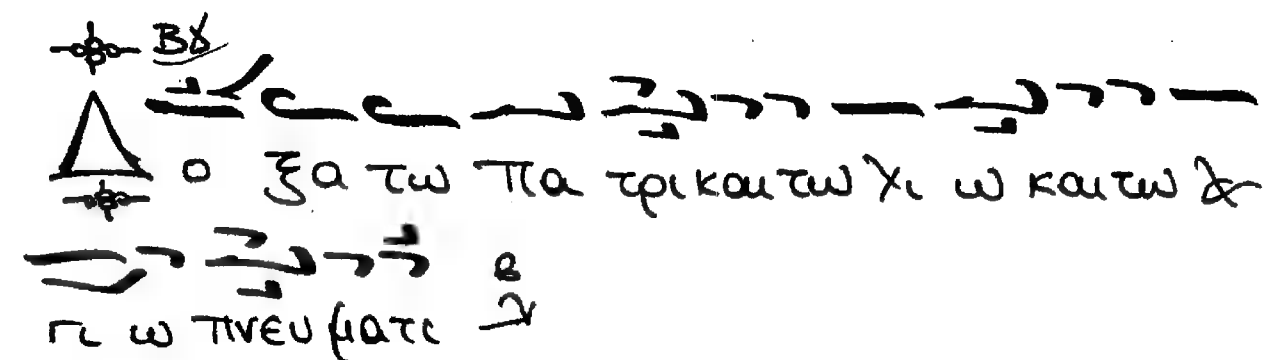 Βγ
Δο ξα τω Πα τρι και τω Υι ω και τω Α
γι ω πνευ ματι